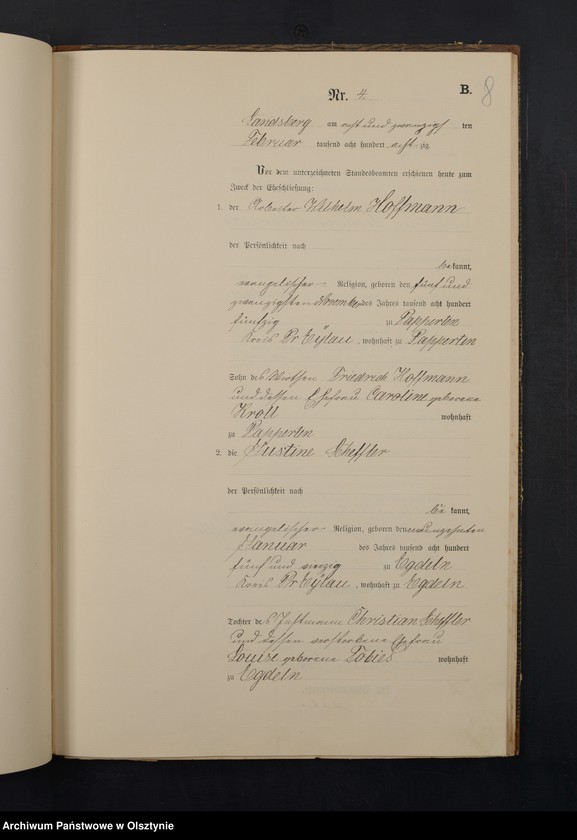 B.
8
Nr. 4.
Landsberg am acht und zwanzigsten
Februar tausend acht hundert acht zig
Vor dem unterzeichneten Standesbeamten erschienen heute zum
Zweck der Eheschließung:
1. der Arbeiter Wilhelm Hoffmann
der Persönlichkeit nach
be kannt,
evangelischer Religion, geboren den fünf und
zwanzigsten November des Jahres tausend acht hundert
fünfzig zu Papperten
Kreis Pr Eylau, wohnhaft zu Papperten
Sohn des Friedrich Hoffmann
und dessen Ehefrau Caroline geborene
Kroll wohnhaft
zu Papperten
2. die Justine Scheffler
der Persönlichkeit nach
be kannt,
evangelischer Religion, geboren den neunzehnten
Januar des Jahres tausend acht hundert
fünf und vierzig zu Egdeln
Kreis Pr Eylau, wohnhaft zu Egdeln
Tochter des Instmann Christian Scheffler
und dessen verstorbene Ehefrau
Louise geborene Tobies wohnhaft
zu Egdeln
Archiwum Państwowe w Olsztynie